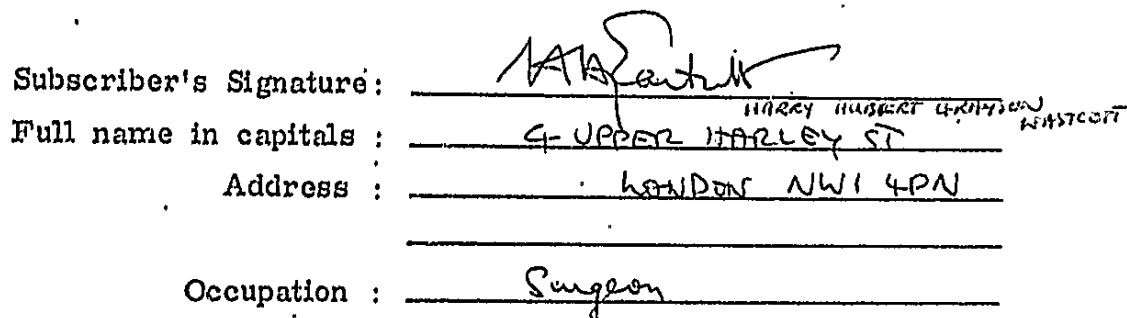 Subscriber's Signature:
HARRY HUBERT GRAYSON
Full name in capitals : 4 UPPER HARLEY ST
Address : LONDON NW1 4PN
Occupation : Surgeon